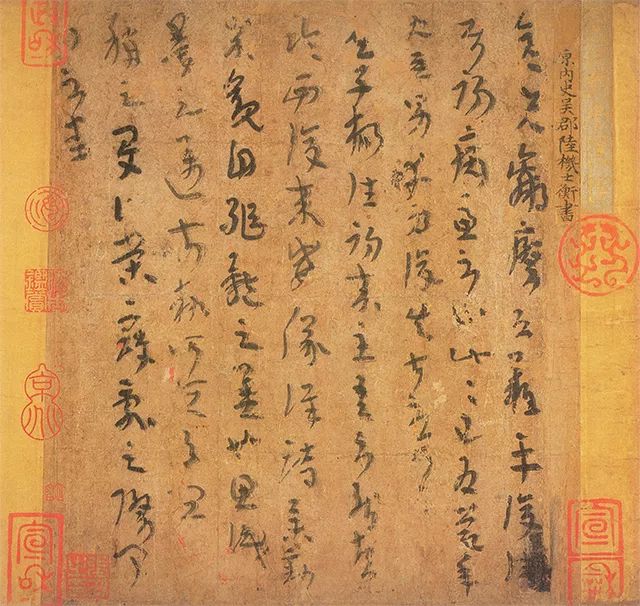 晉內史吳郡陸機士衡書
彥先羸瘵恐難平復往
屬初病慮不止此此已為慶承
使唯男幸為復失前憂耳
吳子楊往初來主吾不能盡
臨西復來威儀詳跱舉動
成觀自軀體之美也思識
量之邁前執所恒有宜
稱之夏伯榮寇亂之際聞
問不悉
宣和
宣和